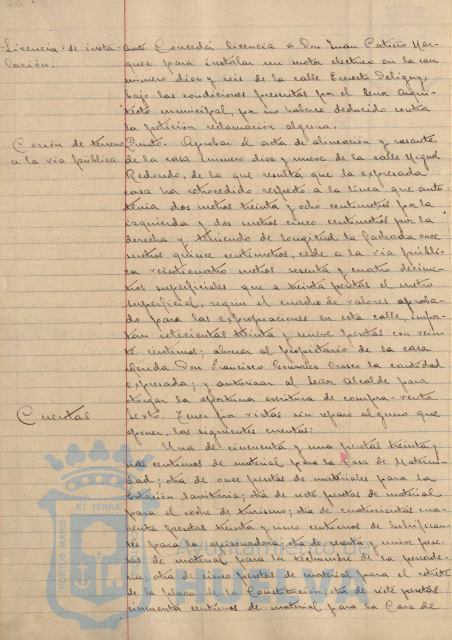 Licencia de insta-
lación.
Cuarto. Conceder licencia a Don Juan Bautista Mar-
quez para instalar un motor electrico en la casa
número diez y seis de la calle Ernesto Deligny,
bajo las condiciones presentes por el Señor Arqui-
tecto municipal, por no haberse deducido contra
la petición reclamación alguna.
Cesión de terreno
a la via pública
Quinto. Aprobar el acta de alineación y rasante
de la casa número diez y nueve de la calle Miguel
Redondo, de la que resulta que la expresada
casa ha retrocedido respecto a la línea que ante-
tenia dos metros treinta y ocho centimetros por la
izquierda y dos metros cinco centimetros por la
derecha y teniendo de longitud la fachada once
metros quince centimetros, cede a la via públi-
ca veinticuatro metros sesenta y cuatro decime-
tros superficiales que a treinta pesetas el metro
superficial, según el cuadro de valores aproba-
do para las expropiaciones en esta calle, impor-
tan setecientas treinta y nueve pesetas con vein-
te centimos; abonar al propietario de la casa
referida Don Francisco Gonzalez Orozco la cantidad
expresada; y autorizar al Señor Alcalde para
otorgar la oportuna escritura de compra-venta
Cuentas
Sexto. Tener por vistas sin reparo alguno que
oponer, las siguientes cuentas:
Una de cincuenta y una pesetas treinta y
centimos de material para la Casa de Materni-
dad; otra de once pesetas de materiales para la
Estación Sanitaria; otra de siete pesetas de material
para el coche de turismo; otra de cuatrocientas cua-
renta pesetas treinta y cinco centimos de lubrifican-
tes para la apisonadora; otra de sesenta y nueve pese-
tas de material para la techumbre de la pescade-
ria; otra de cinco pesetas de material para el
de la plaza de la Constitución; otra de siete pesetas
cincuenta centimos de material para la Casa de
PORTUS MARIS ET TERRAE
Ayuntamiento de
HUELVA